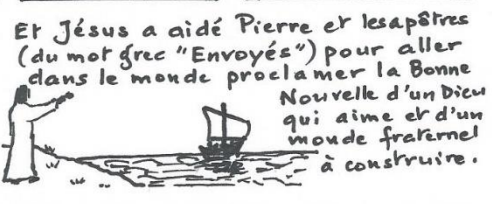 Et Jésus a aidé Pierre et les apôtres
(du mot grec "Envoyés") pour aller
dans le monde proclamer la Bonne
Nouvelle d'un Dieu
qui aime et d'un
monde fraternel
à construire.